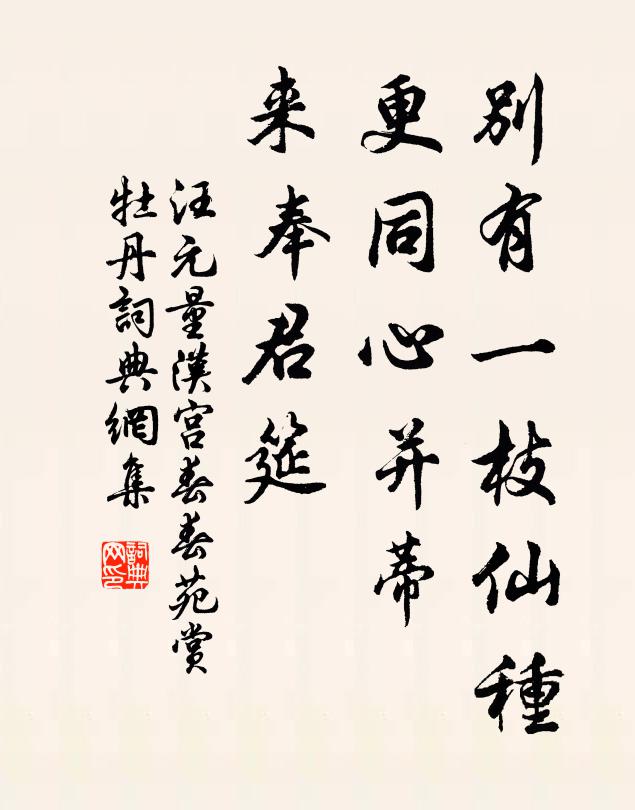 別有一枝仙種
更同心并蒂
来奉君筵
汪元量漢宮春春苑賞
牡丹詞典網集
詞典
网印